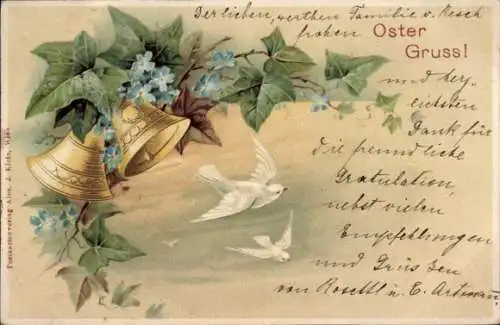 Der lieben, werthen Familie v. Resch
frohen
Oster
Gruss!
und herz-
lichsten
Dank für
die freundliche
Gratulation,
nebst vielen
Empfehlungen
und Grüssen
von Rosettl u. E.
Postkartenverlag Alex. J. Klein, Wien